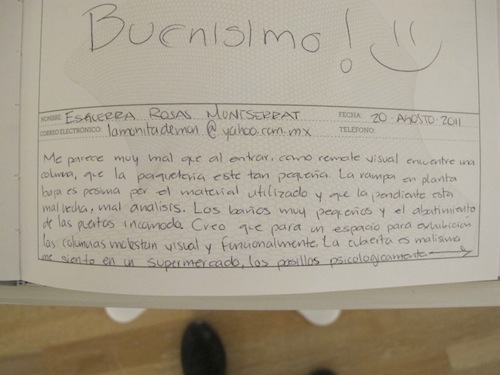 Buenisimo!
NOMBRE: ESQUERRA ROSAS MONTSERRAT FECHA: 20·AGOSTO·2011
CORREO ELECTRÓNICO: lamanitademon@yahoo.com.mx TELÉFONO:
Me parece muy mal que al entrar, como remate visual encuentre una
columna, que la paqueteria este tan pequeña. La rampa en planta
baja es pesima por el material utilizado y que la pendiente esta
mal hecha, mal analisis. Los baños muy pequeños y el abatimiento
de las puertas incomoda. Creo que para un espacio para exhibicion
las columnas molestan visual y funcionalmente. La cubierta es malisima
me siento en un supermercado, los pasillos psicologicamente